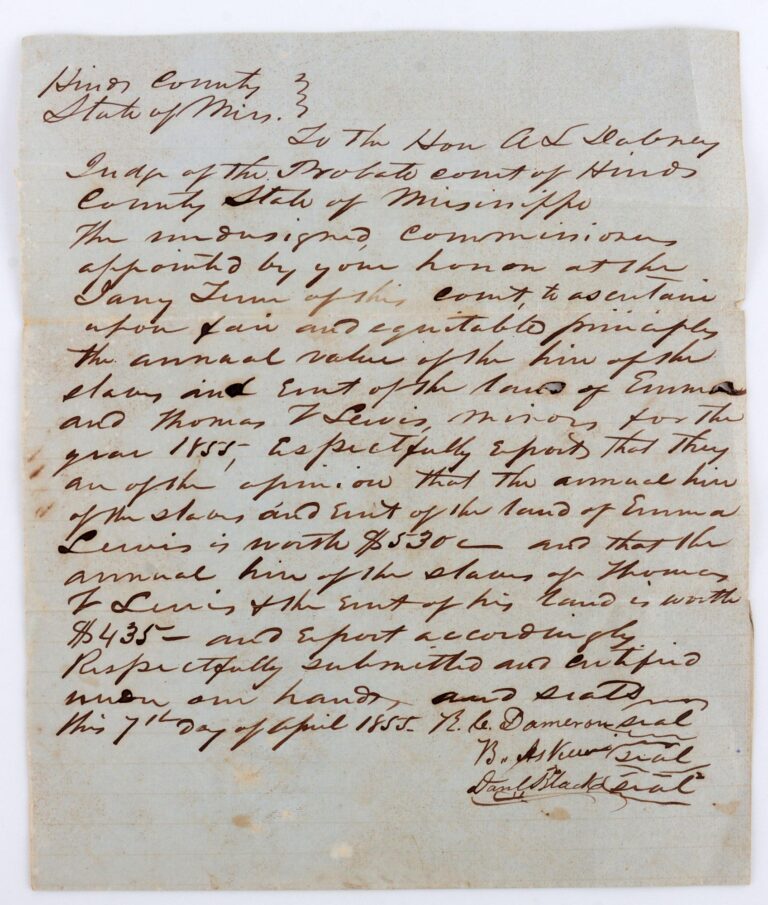 Hinds County }
State of Miss. }
To the Hon A L Dabney
Judge of the Probate court of Hinds
County State of Missisippi
The undersigned, Commissioners
appointed by your honor at the
Jany Term of this court, to ascertain
upon fair and equitable principles
the annual value of the hire of the
slaves and rent of the land of Emma
and Thomas V Lewis, minors for the
year 1855, respectfully report that they
are of the opinion that the annual hire
of the slaves and rent of the land of Emma
Lewis is worth $530 and that the
annual hire of the slaves of Thomas
V Lewis & the rent of his land is worth
$435- and report accordingly
Respectfully submitted and certified
under our hands, and seals
this 7th day of April 1855- R. C. Dameron seal
B. Askew seal
Danl Black seal